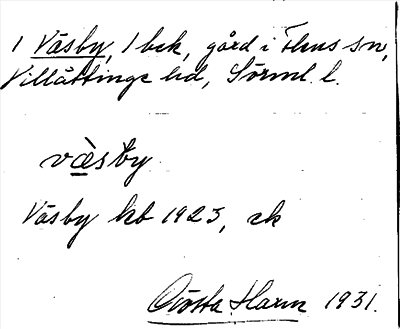 1 Väsby, 1 bck, gård i Flens sn,
Villåttinge hd, Sörml. l.
väsby
Väsby kb 1925, ck
Gösta Harm 1931.